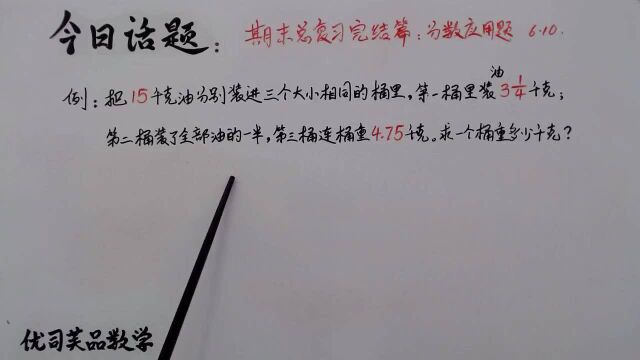 今日话题：期末总复习完结篇：分数应用题 6.10.
例：把15千克油分别装进三个大小相同的桶里，第一桶里装油3 1/4千克；
第二桶装了全部油的一半，第三桶连桶重4.75千克。求一个桶重多少千克？
优司芙品数学